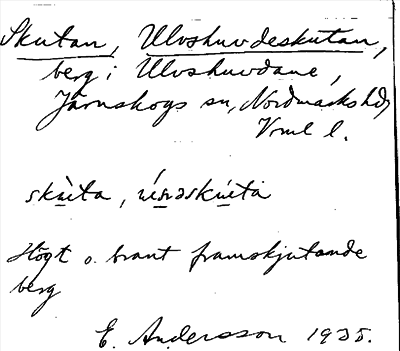 Skutan, Ulvshuvdeskutan,
berg i Ulvshuvdane,
Järnskogs sn, Nordmarks hd,
Vrml l.
skùta,
Högt o. brant framskjutande
berg
E. Andersson 1935.